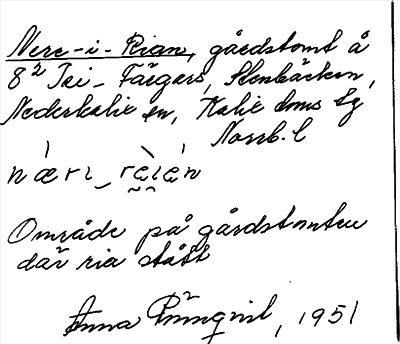 Nere-i-Rian, gårdstomt å
8² Jei-Färgars, Stenbäcken,
Nederkalix sn, Kalix doms Sg
Norrb. l
næri_reian
Område på gårdstomten
där ria stått
Anna 1951